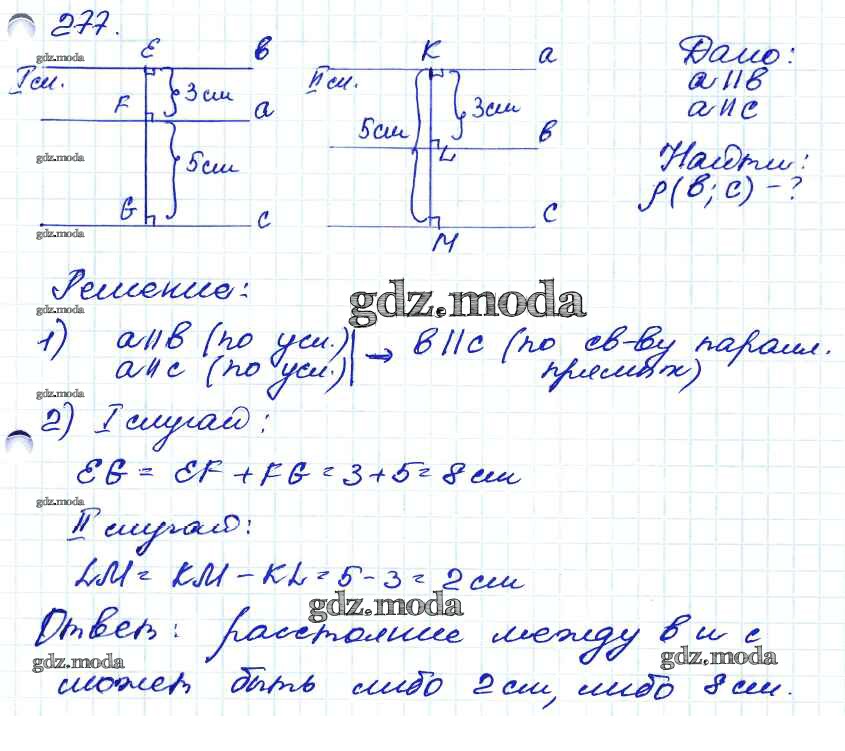 277.
gdz.moda
E в
I сл.
3 см
F а
gdz.moda
5 см
G с
gdz.moda
K а
II сл.
5 см 3 см
L в
с
M
Дано:
a || в
a || с
Найти:
ρ(в; с) - ?
Решение:
gdz.moda
gdz.moda
1) a || в (по усл.) → в || с (по св-ву паралл.
a || с (по усл.) прямых)
gdz.moda
2) I случай:
EG = EF + FG = 3 + 5 = 8 см
gdz.moda
II случай:
LM = KM - KL = 5 - 3 = 2 см
gdz.moda
Ответ: расстояние между в и с
gdz.moda
gdz.moda
может быть либо 2 см, либо 8 см.